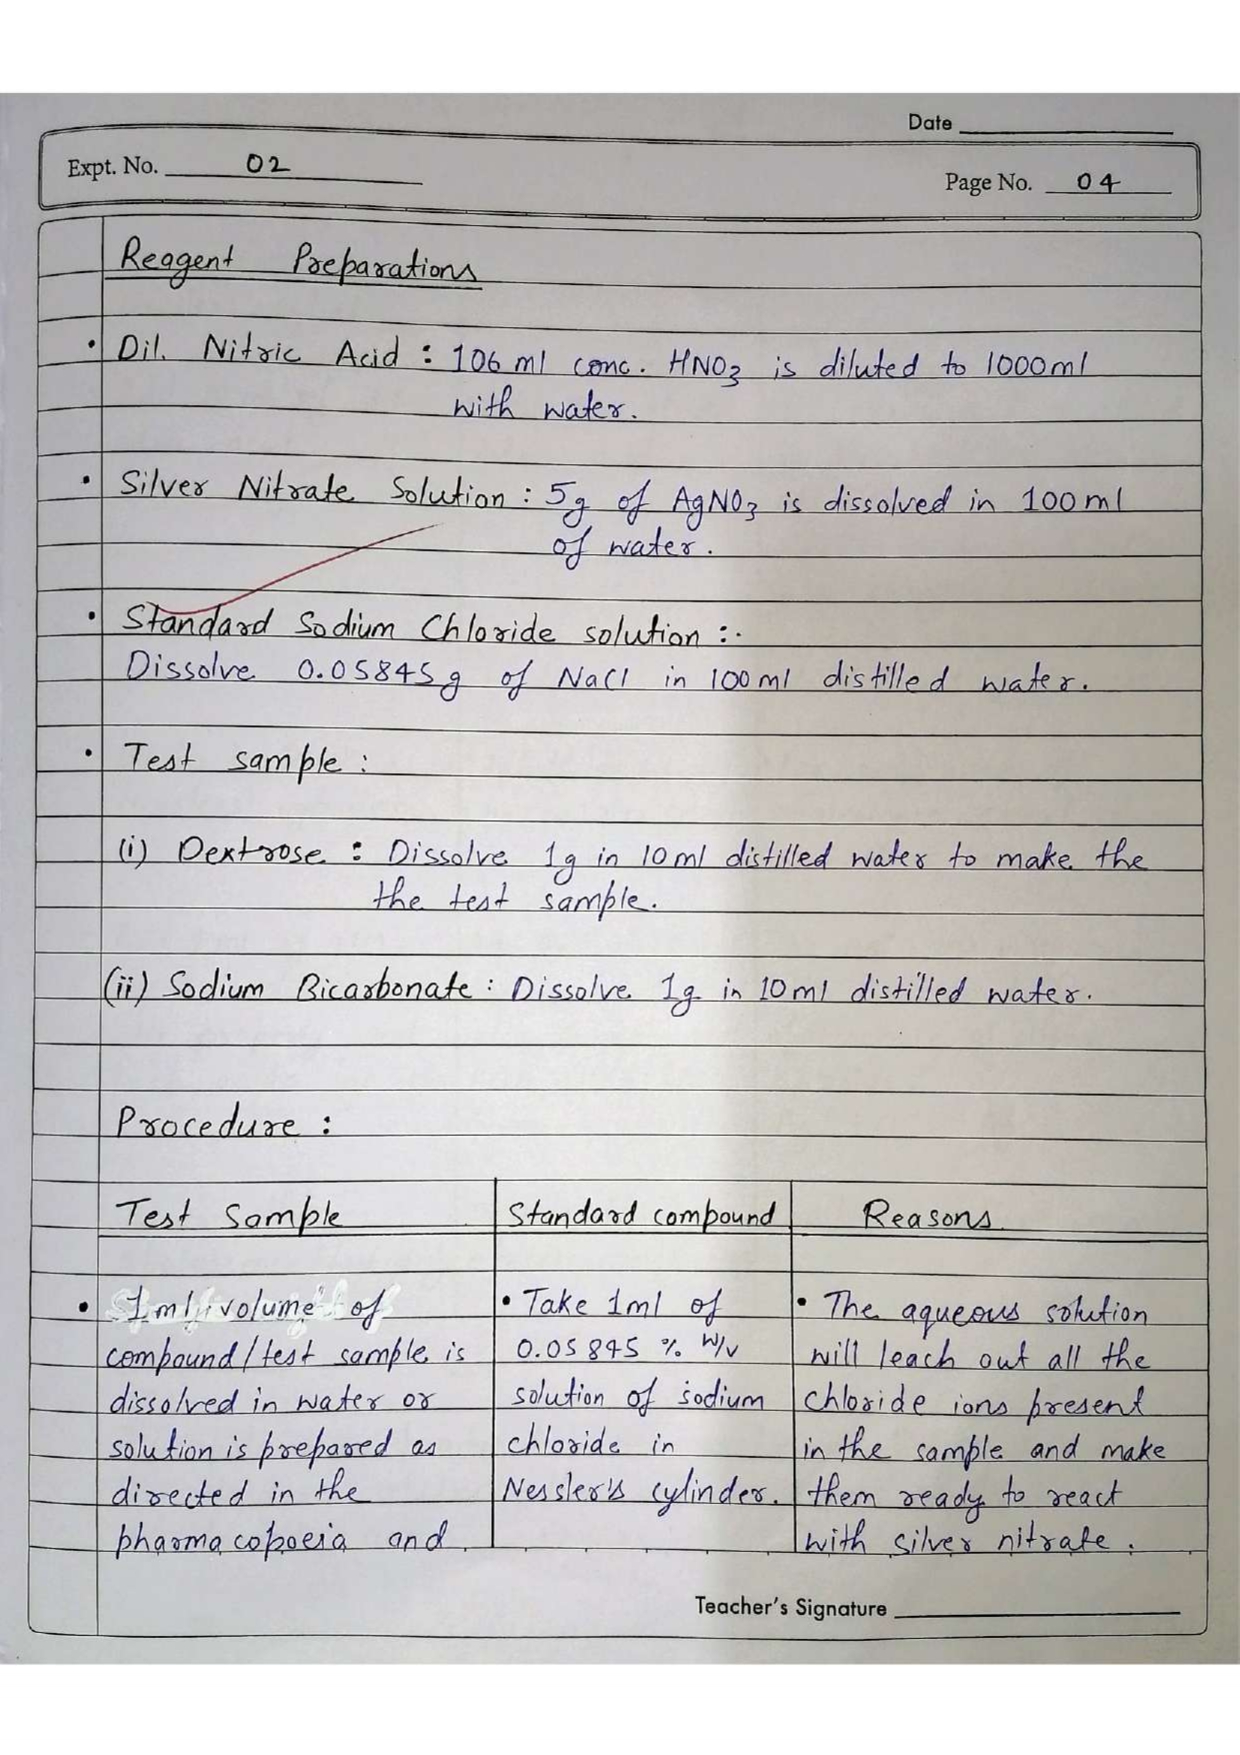 Date
Expt. No. 02
Page No. 04
Reagent Preparations
• Dil. Nitric Acid : 106 ml conc. HNO3 is diluted to 1000ml
with water.
• Silver Nitrate Solution : 5g of AgNO3 is dissolved in 100 ml
of water.
• Standard Sodium Chloride solution :-
Dissolve 0.05845g of NaCl in 100ml distilled water.
• Test sample :
(i) Dextrose : Dissolve 1g in 10ml distilled water to make the
the test sample.
(ii) Sodium Bicarbonate : Dissolve 1g in 10ml distilled water.
Procedure :
Test Sample
Standard compound
Reasons
• 1 ml volume of
compound/test sample is
dissolved in water or
solution is prepared as
directed in the
pharmacopoeia and
• Take 1ml of
0.05845 % W/v
solution of sodium
chloride in
Nessler's cylinder.
• The aqueous solution
will leach out all the
chloride ions present
in the sample and make
them ready to react
with silver nitrate.
Teacher's Signature